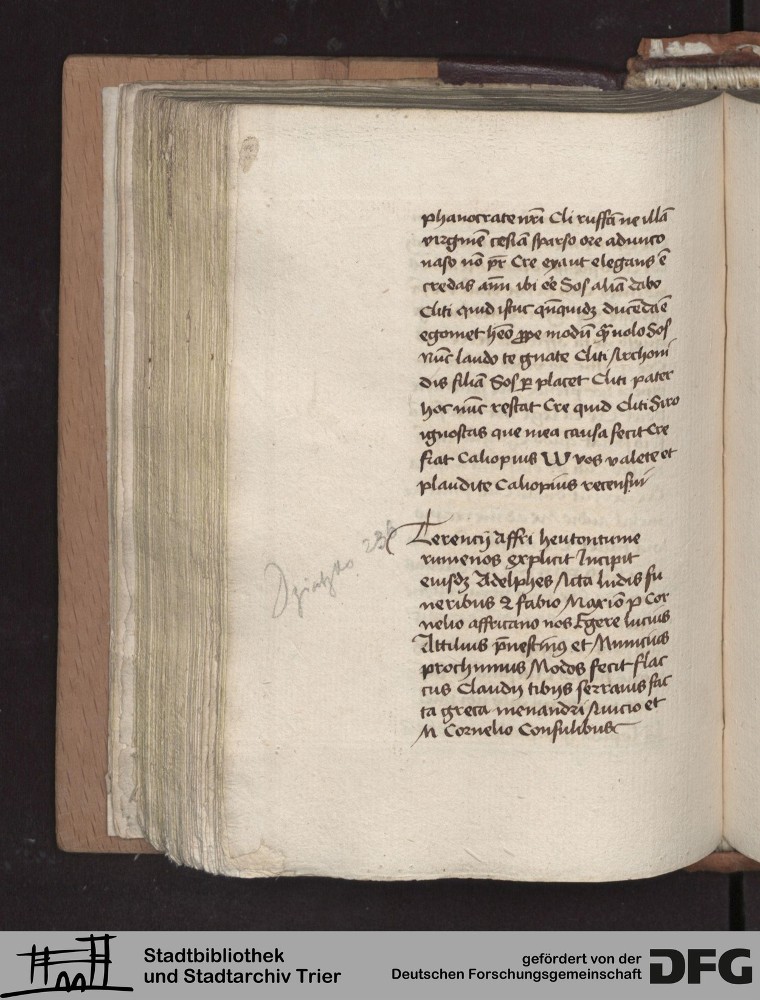 phanocrate nr̄i Cli ruffā ne illā
virginē cesiā sparso ore adunco
naso nō pr̄ Cre eya ut elegans ē
credas aīm ibi eē Sos aliā dabo
Cliti quid istuc qn̄quidꝫ ducēda ē
egomet heō ꝓpe modū qᷓ uolo Sos
Nūc laudo te gnate Cliti Archoni
dis filiā Sos ꝑ placet Cliti pater
hoc nūc restat Cre quid Cliti Siro
ignoscas que mea causa fecit Cre
fiat Caliopius W vos valete et
plaudite Caliopius recensui
Terencij Affri heutontume
rumenos explicit Incipit
eiusdꝫ Adelphes Acta ludis fu
neribus Q fabio Maxīo p Cor
nelio affricano nos Egere lucius
Attilius p̄nestinꝯ et Minucius
prochimus Modos fecit flac
cus Claudij tibijs serranis fac
ta greca menandri Anicio et
M Cornelio Consulibus
Dziatzko 23
Stadtbibliothek
und Stadtarchiv Trier
gefördert von der
Deutschen Forschungsgemeinschaft
DFG